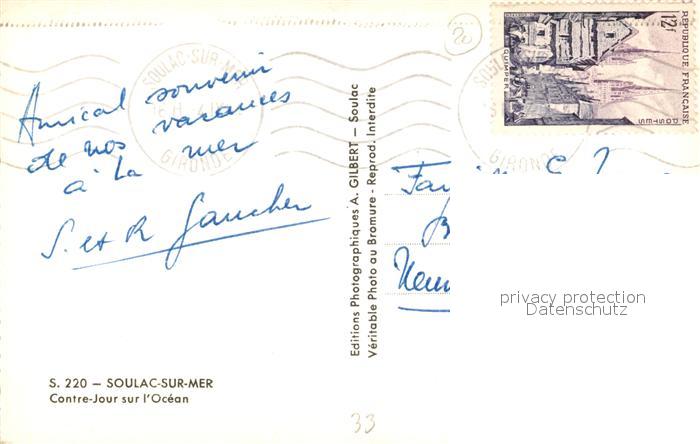 Amical souvenir
de nos vacances
à la mer
S. et R Gaucher
S. 220 – SOULAC-SUR-MER
Contre-Jour sur l'Océan
Editions Photographiques A. GILBERT – Soulac
Véritable Photo au Bromure - Reprod. Interdite
SOULAC-SUR-MER
GIRONDE
20
12f
REPUBLIQUE FRANÇAISE
POSTES
QUIMPER
GIRONDE
privacy protection
Datenschutz
33